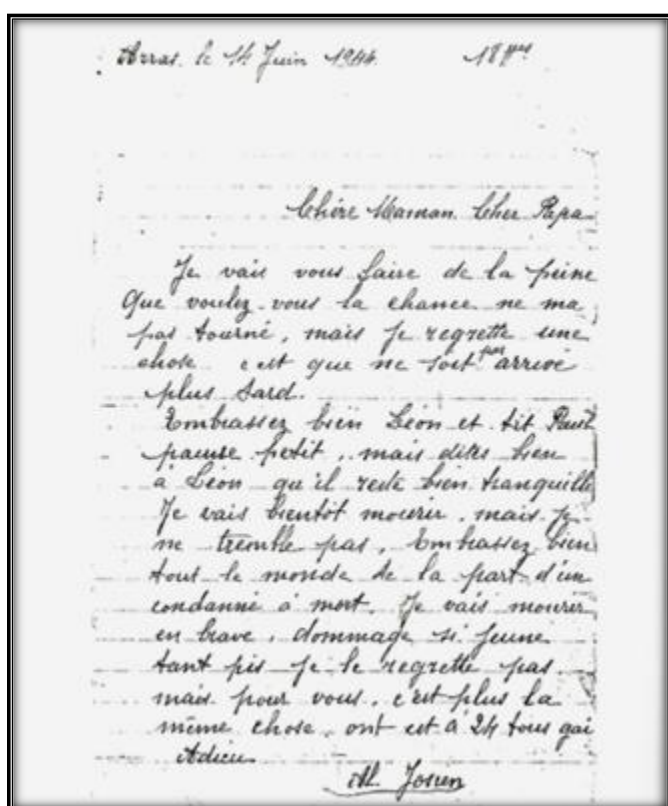 Arras. le 14 Juin 1944. 18 Hres
Chère Maman. Cher Papa
Je vais vous faire de la peine
Que voulez-vous la chance ne ma
pas tourné, mais je regrette une
chose c'est que ne soit pas arrivé
plus tard.
Embrassez bien Léon et tit Paul
pauvre petit, mais dites bien
à Léon qu'il reste bien tranquille
Je vais bientôt mourir, mais je
ne tremble pas, Embrassez bien
tout le monde de la part d'un
condanné à mort. Je vais mourir
en brave, dommage si jeune
tant pis je le regrette pas
mais pour vous, c'est plus la
même chose, ont est à 24 tous gai
Adieu